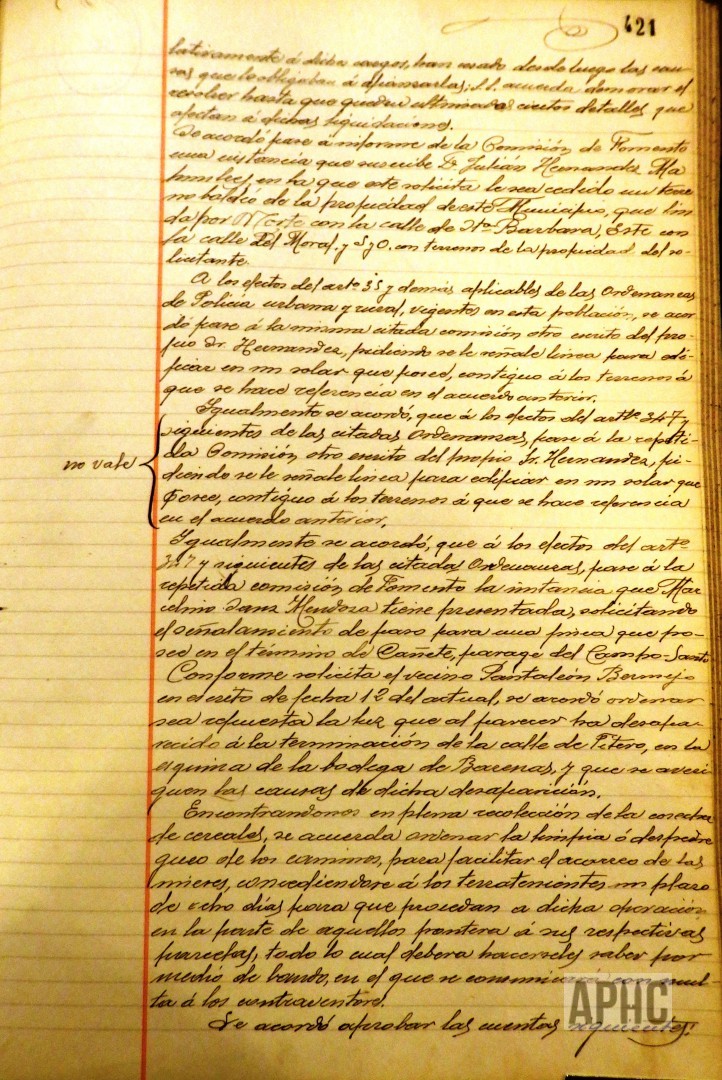 421
lativamente á dichos cargos, han cesado desde luego las cau-
sas que le obligaban á afianzarlas; S.S. acuerda demorar el
resolver hasta que queden ultimados ciertos detalles que
afectan a dichas liquidaciones.
Se acordó pase a informe de la Comisión de Fomento
una instancia que suscribe D. Julián Hernandez Ma
en la que este solicita le sea cedido un terre
no baldío de la propiedad de este Municipio, que lin
da por Norte con la calle de Sta Barbara, Este con
la calle Del Moral, y S. y O. con terrenos de la propiedad del so-
licitante.
A los efectos del artº 35 y demás aplicables de las Ordenanzas
de Policía urbana y rural, vigentes en esta población, se acor
dó pase á la misma citada comisión otro escrito del pro-
pio Sr. Hernandez, pidiendo se le señale linea para edi-
ficar en un solar que posee, contiguo á los terrenos á
que se hace referencia en el acuerdo anterior.
Igualmente se acordó, que á los efectos del artº 347 y
siguientes de las citadas Ordenanzas, pase á la repeti-
da Comisión, otro escrito del propio Sr. Hernandez, pi-
no vale
diendo se le señale linea para edificar en un solar que
posee, contiguo á los terrenos á que se hace referencia
en el acuerdo anterior.
Igualmente se acordó, que á los efectos del artº
347 y siguientes de las citadas Ordenanzas, pase á la
repetida comisión de Fomento la instancia que Mar
celino Sanz Mendoza tiene presentada, solicitando
el señalamiento de paso para una finca que po-
see en el término de Cañete, parage del Campo-Santo
Conforme solicita el vecino Pantaleón Bermejo
en escrito de fecha 12 del actual, se acordó ordenar
sea repuesta la luz que al parecer ha desapa-
recido á la terminación de la calle de Pitero, en la
esquina de la bodega de Barenas, y que se averi
guen las causas de dicha desaparición.
Encontrandonos en plena recolección de la cosecha
de cereales, se acuerda ordenar la limpia ó despedre
gueo de los caminos, para facilitar el acarreo de las
mieses, concediendose á los terratenientes un plazo
de ocho días para que procedan a dicha operación
en la parte de aquellos frontera á sus respectivas
parcelas, todo lo cual debera hacerseles saber por
medio de bando, en el que se conminará con mul-
ta á los contraventores.
Se acordó aprobar las cuentas siguientes:
APHC